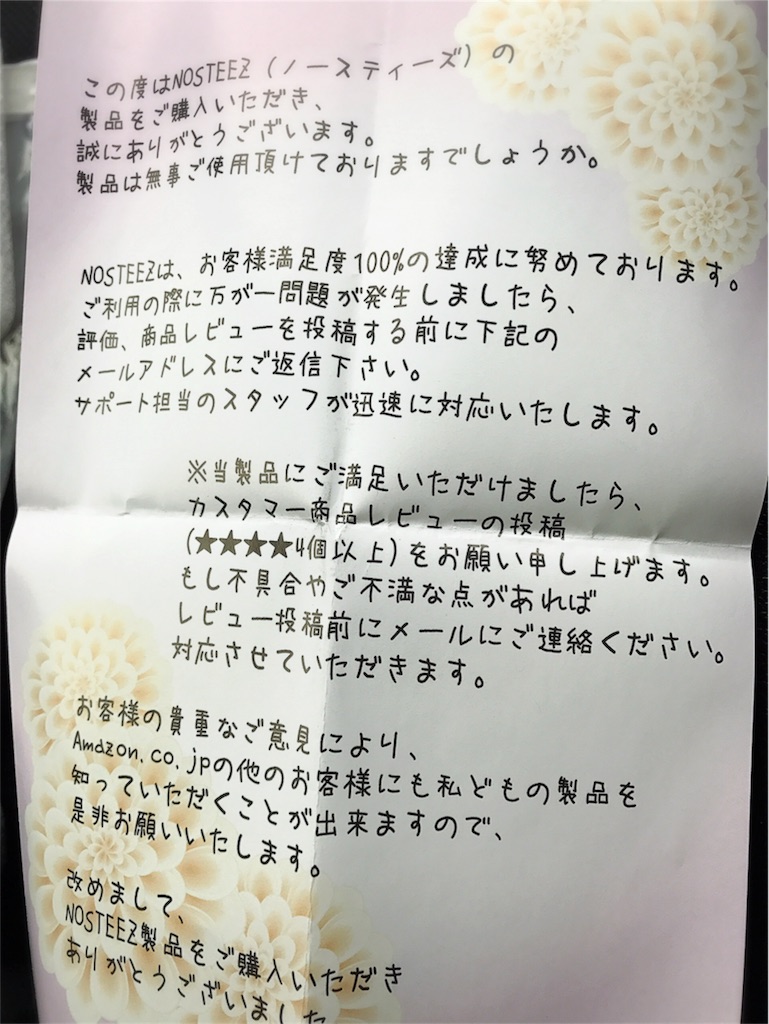 この度はNOSTEEZ(ノースティーズ)の
製品をご購入いただき、
誠にありがとうございます。
製品は無事ご使用頂けておりますでしょうか。
NOSTEEZは、お客様満足度100%の達成に努めております。
ご利用の際に万が一問題が発生しましたら、
評価、商品レビューを投稿する前に下記の
メールアドレスにご返信下さい。
サポート担当のスタッフが迅速に対応いたします。
※当製品にご満足いただけましたら、
カスタマー商品レビューの投稿
(★★★★4個以上)をお願い申し上げます。
もし不具合やご不満な点があれば
レビュー投稿前にメールにご連絡ください。
対応させていただきます。
お客様の貴重なご意見により、
Amazon.co.jpの他のお客様にも私どもの製品を
知っていただくことが出来ますので、
是非お願いいたします。
改めまして、
NOSTEEZ製品をご購入いただき
ありがとうございました